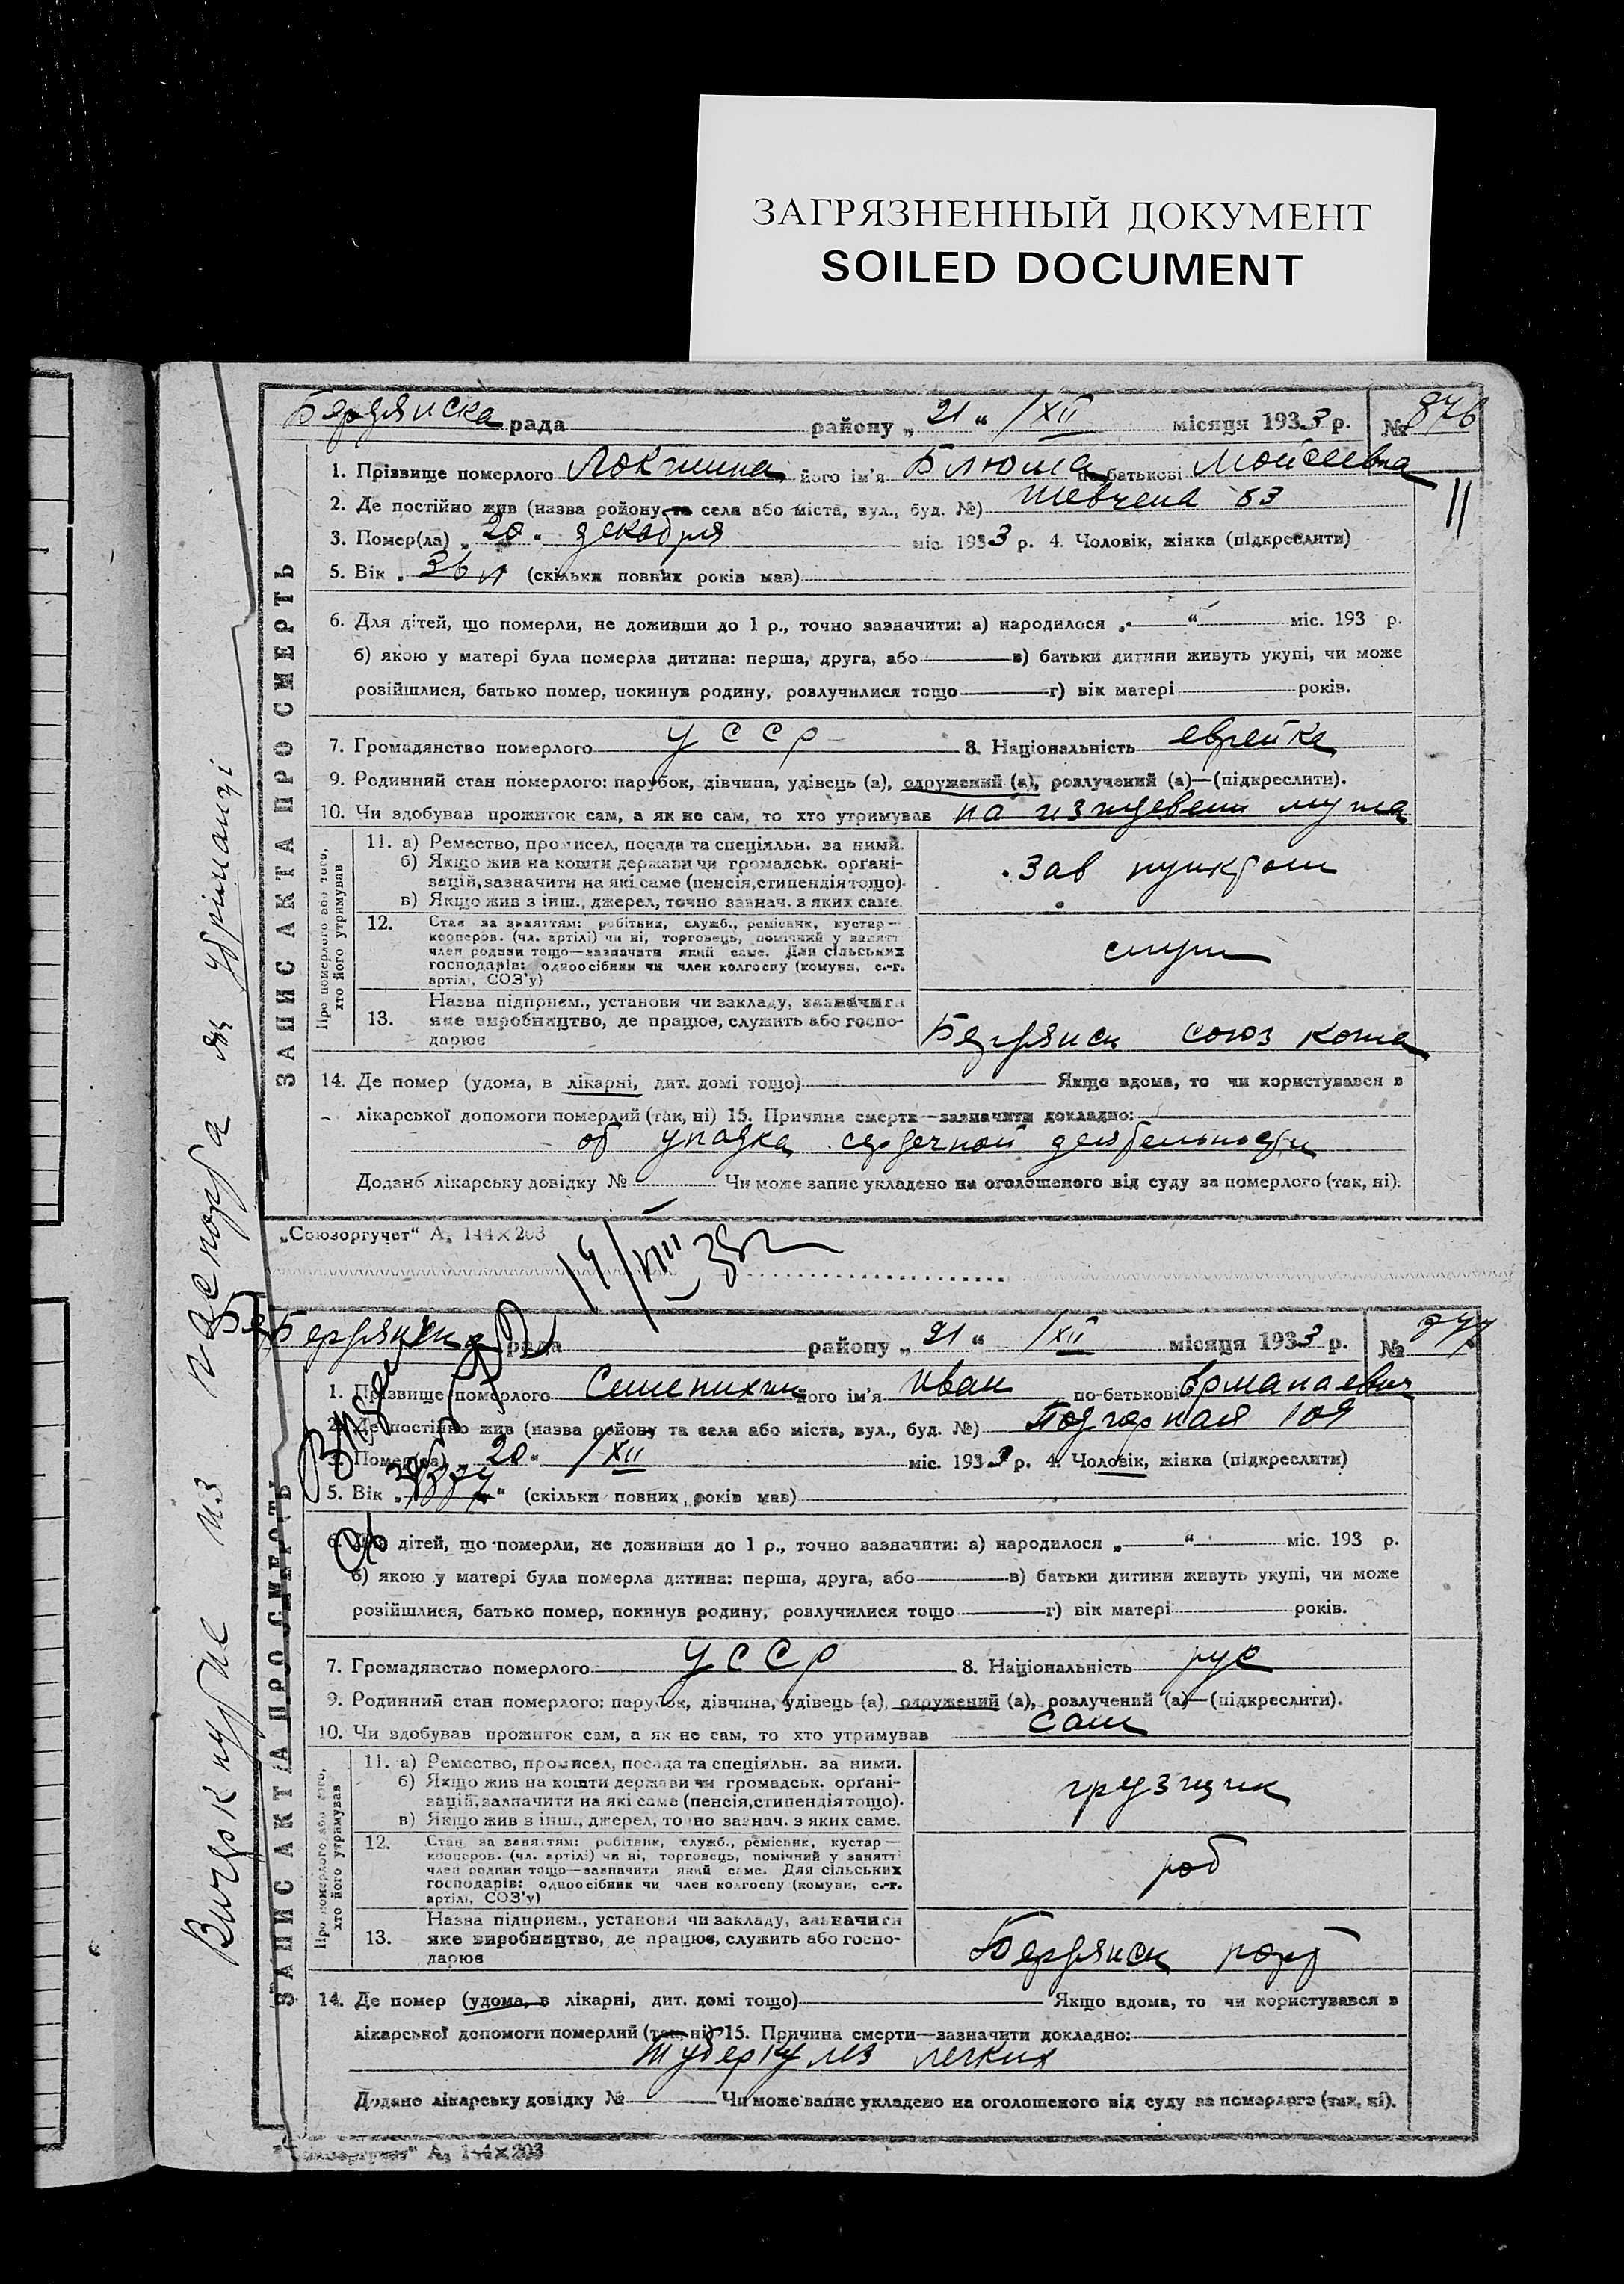 ЗАГРЯЗНЕННЫЙ ДОКУМЕНТ
SOILED DOCUMENT
Бердянска рада району „ 21 “ /XII місяця 1933 р. № 876
1. Прізвище померлого Локшина його ім'я Блюма по батькові Моисеевна
2. Де постійно жив (назва району та села або міста, вул., буд. №) 53
3. Помер(ла) „ 20 “ декабря міс. 1933 р. 4. Чоловік, жінка (підкреслити)
5. Вік „ 36 л (скільки повних років мав)
6. Для дітей, що померли, не доживши до 1 р., точно зазначити: а) народилося „ “ міс. 193 р.
б) якою у матері була померла дитина: перша, друга, або в) батьки дитини живуть укупі, чи може
розійшлися, батько помер, покинув родину, розлучилися тощо г) вік матері років.
7. Громадянство померлого УССР 8. Національність еврейка
9. Родинний стан померлого: парубок, дівчина, удівець (а), одружений (а), розлучений (а)—(підкреслити).
10. Чи здобував прожиток сам, а як не сам, то хто утримував на мужа
ЗАПИС АКТА ПРО СМЕРТЬ
Про померлого або того, хто його утримував
11. а) Ремество, промисел, посада та спеціяльн. за ними.
б) Якщо жив на кошти держави чи громадськ. органі-
зацій, зазначити на які саме (пенсія, стипендія тощо).
в) Якщо жив з інш., джерел, точно зазнач. з яких саме.
Зав пунктом
12. Стан за заняттям: робітник, служб., ремісник, кустар—
кооперов. (чл. артілі) чи ні, торговець, помічний у занятті
член родини тощо—зазначити який саме. Для сільських
господарів: одноосібник чи член колгоспу (комуни, с.-г.
артілі, СОЗ'у)
служ
13. Назва підприєм., установи чи закладу, зазначити
яке виробництво, де працює, служить або госпо-
дарює
Бердянск союз кожа
14. Де помер (удома, в лікарні, дит. домі тощо) Якщо вдома, то чи користувався в
лікарської допомоги померлий (так, ні) 15. Причина смерти—зазначити докладно:
от упадка сердечной деятельности
Додано лікарську довідку № Чи може запис укладено на оголошеного від суду за померлого (так, ні).
„Союзоргучет“ А, 144×203
Бердянска рада району „ 21 “ /XII місяця 1933 р. № 877
1. Прізвище померлого Семенихин його ім'я Иван по-батькові
2. Де постійно жив (назва району та села або міста, вул., буд. №) Подгорная 109
3. Помер(ла) „ 20 “ /XII міс. 1933 р. 4. Чоловік, жінка (підкреслити)
5. Вік „ “ (скільки повних років мав)
6. Для дітей, що померли, не доживши до 1 р., точно зазначити: а) народилося „ “ міс. 193 р.
б) якою у матері була померла дитина: перша, друга, або в) батьки дитини живуть укупі, чи може
розійшлися, батько помер, покинув родину, розлучилися тощо г) вік матері років.
7. Громадянство померлого УССР 8. Національність рус
9. Родинний стан померлого: парубок, дівчина, удівець (а), одружений (а), розлучений (а)—(підкреслити).
10. Чи здобував прожиток сам, а як не сам, то хто утримував сам
ЗАПИС АКТА ПРО СМЕРТЬ
Про померлого або того, хто його утримував
11. а) Ремество, промисел, посада та спеціяльн. за ними.
б) Якщо жив на кошти держави чи громадськ. органі-
зацій, зазначити на які саме (пенсія, стипендія тощо).
в) Якщо жив з інш., джерел, точно зазнач. з яких саме.
грузчик
12. Стан за заняттям: робітник, служб., ремісник, кустар—
кооперов. (чл. артілі) чи ні, торговець, помічний у занятті
член родини тощо—зазначити який саме. Для сільських
господарів: одноосібник чи член колгоспу (комуни, с.-г.
артілі, СОЗ'у)
роб
13. Назва підприєм., установи чи закладу, зазначити
яке виробництво, де працює, служить або госпо-
дарює
Бердянск порт
14. Де помер (удома, в лікарні, дит. домі тощо) Якщо вдома, то чи користувався в
лікарської допомоги померлий (так, ні) 15. Причина смерти—зазначити докладно:
туберкулез легких
Додано лікарську довідку № Чи може запис укладено на оголошеного від суду за померлого (так, ні).
„Союзоргучет“ А, 144×203
из паспорта